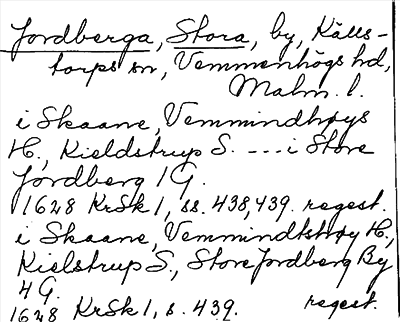 Jordberga, Stora, by, Källs-
torps sn, Vemmenhögs hd,
Malm. l.
i Skaane, Vemmindhøys
H., Kieldstrup S. --- i Store
Jordberg 1 G.
1628 KrSk 1, ss. 438, 439. regest.
i Skaane, Vemmindtshøy H.,
Kielstrup S., Store Jordberg By
4 G.
1628 KrSk 1, s. 439. regest.